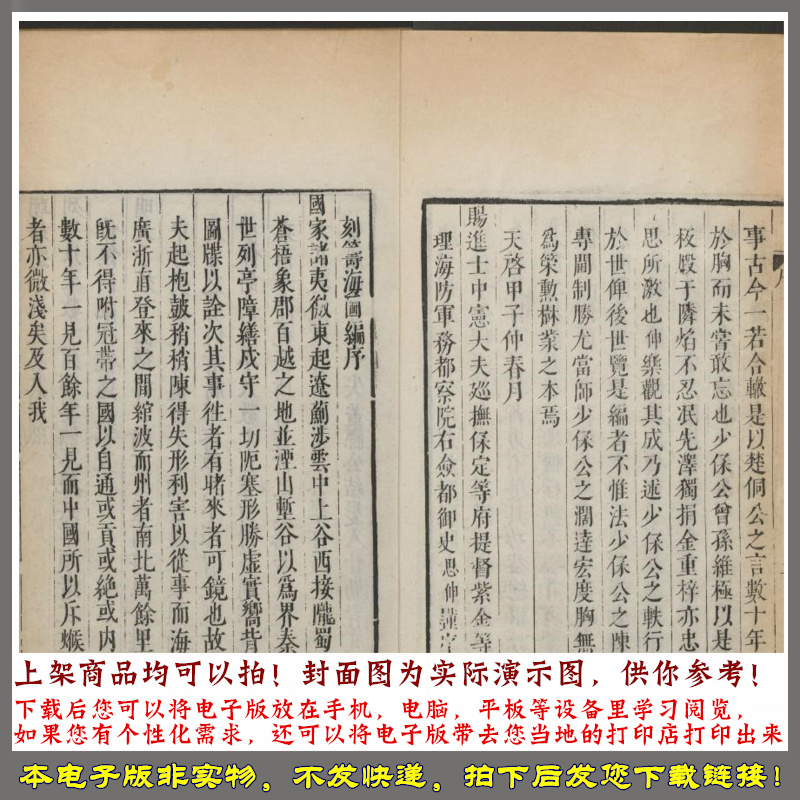 事古今一若合轍是以楚侗公之言數十年
於胸而未嘗敢忘也少保公曾孫維極以是
板燬于隣焰不忍泯先澤獨捐金重梓亦忠
思所激也伸樂觀其成乃述少保公之軼行
於世俾後世覽是編者不惟法少保公之陳
專閫制勝尤當師少保公之濶達宏度胸無
為策勳樹業之本焉
天啓甲子仲春月
賜進士中憲大夫巡撫保定等府提督紫金等
理海防軍務都察院右僉都御史思伸謹
刻籌海圖編序
國家諸夷徼東起遼薊涉雲中上谷西接隴蜀
蒼梧象郡百越之地並湮山塹谷以為界秦
世列亭障繕戍守一切阨塞形勝虛實嚮背
圖牒以詮次其事徃者有睹來者可鏡也故
夫起枹鼓稍稍陳得失形利害以從事而海
廣浙直登來之間綰波而州者南北萬餘里
旣不得咐冠帶之國以自通或貢或絶或内
數十年一見百餘年一見而中國所以斥堠
者亦微淺矣及入我
上架商品均可以拍！封面图为实际演示图，供你参考！
下载后您可以将电子版放在手机，电脑，平板等设备里学习阅览，
如果您有个性化需求，还可以将电子版带去您当地的打印店打印出来
本电子版非实物，不发快递，拍下后发您下载链接！